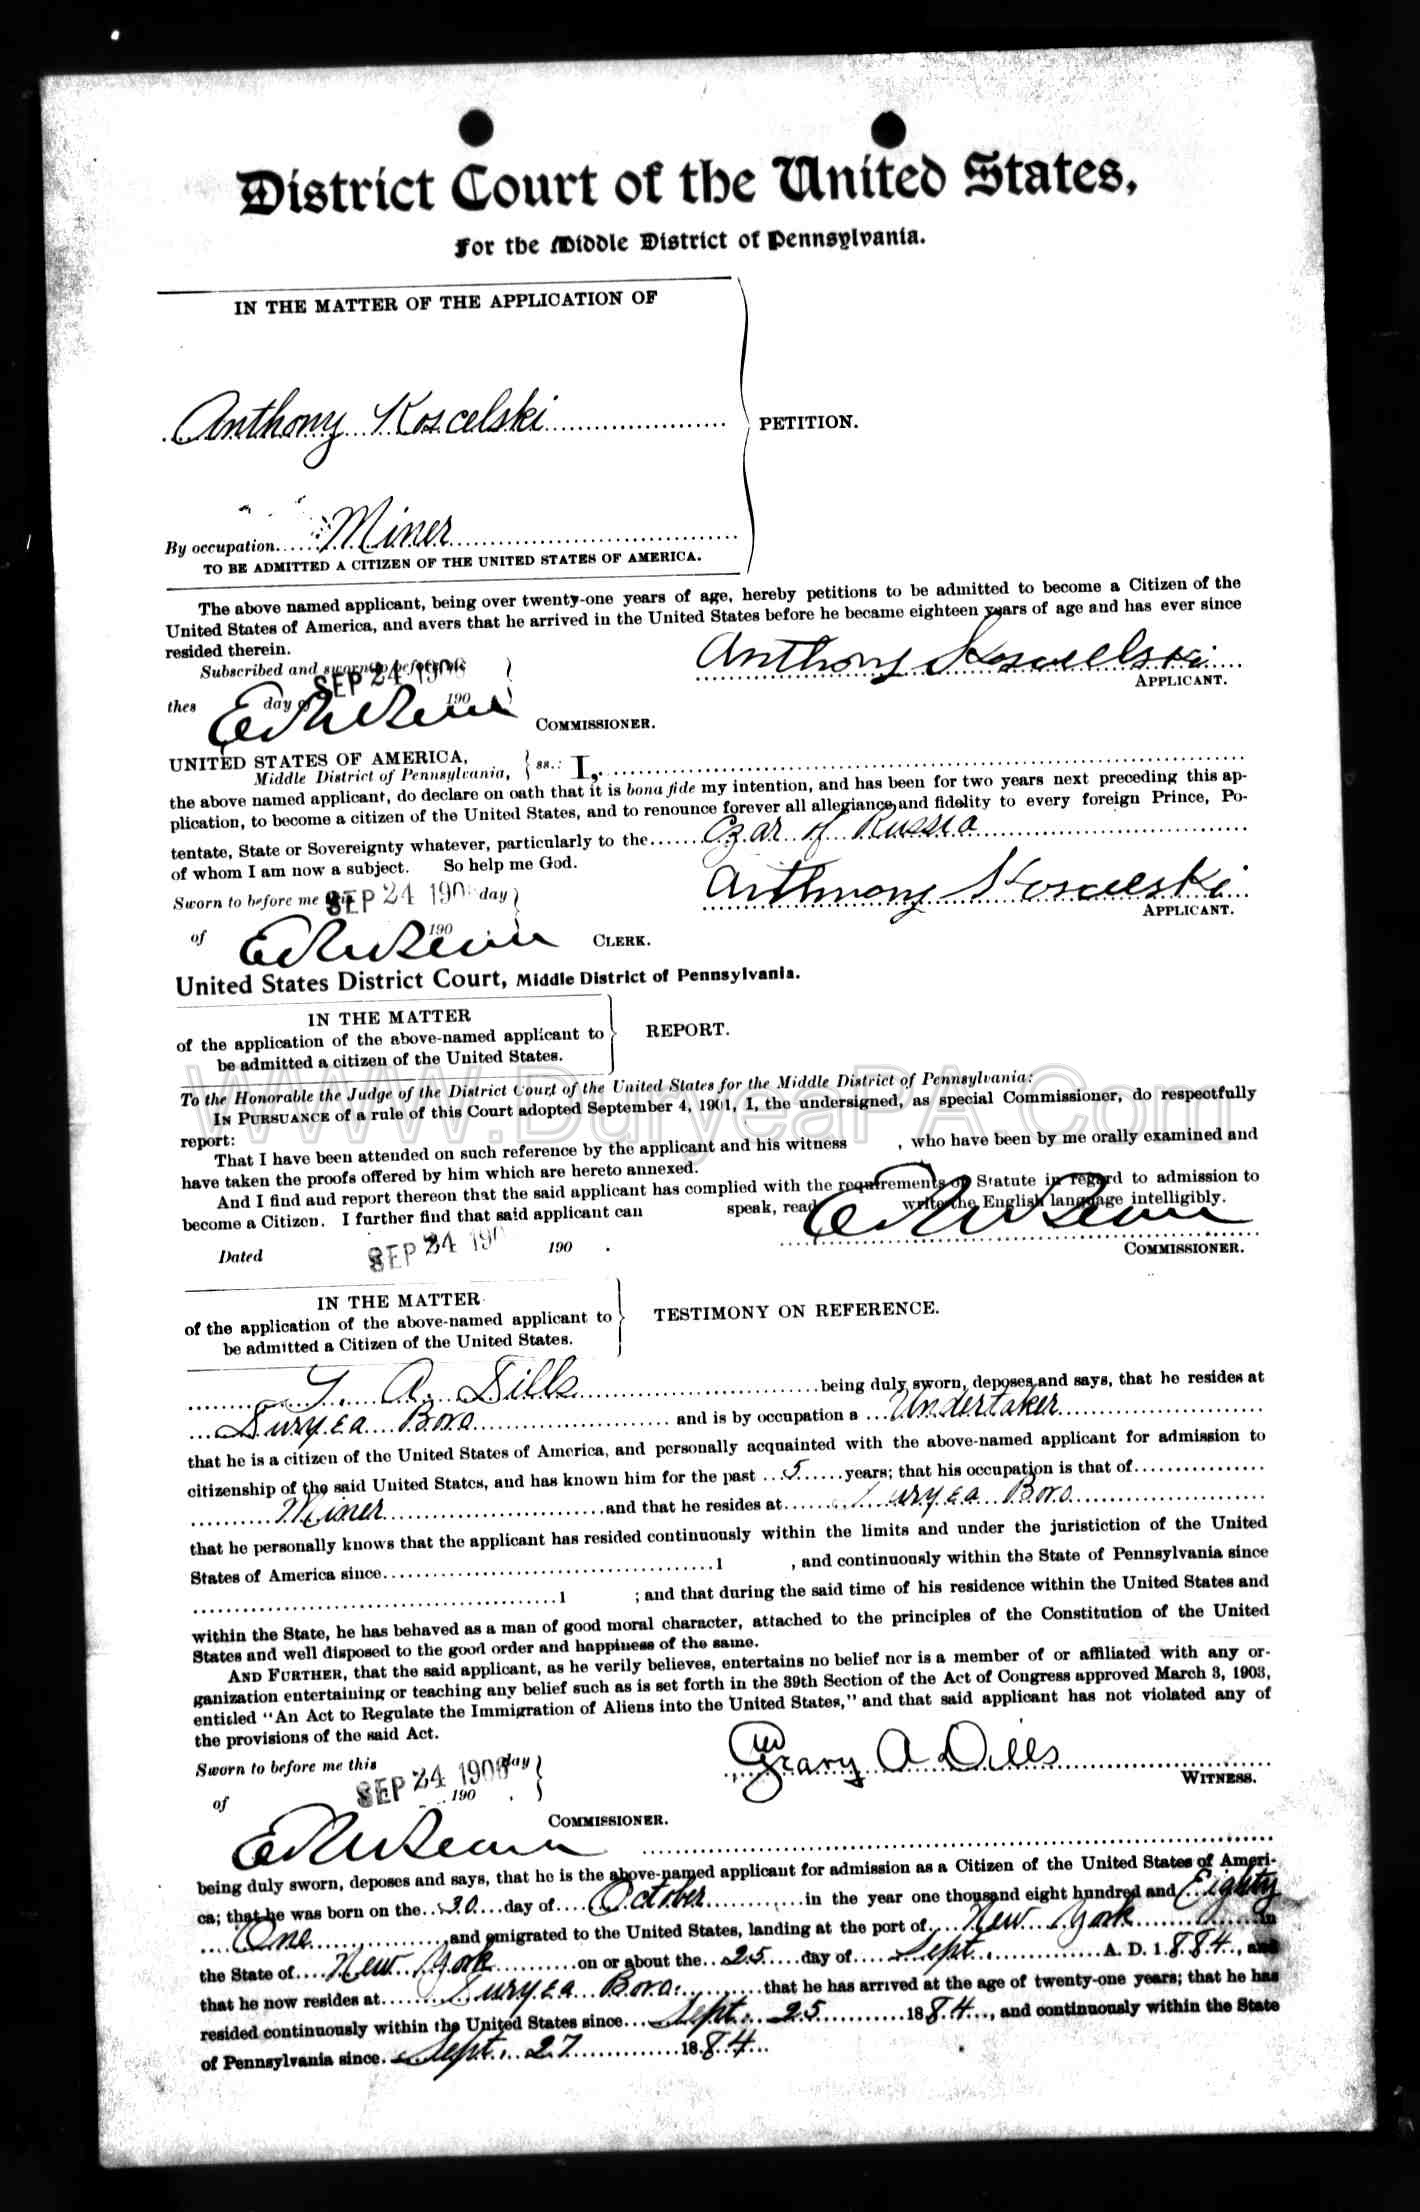 District Court of the United States,
For the Middle District of Pennsylvania.
IN THE MATTER OF THE APPLICATION OF
Anthony Koscelski
PETITION.
By occupation Miner
TO BE ADMITTED A CITIZEN OF THE UNITED STATES OF AMERICA.
The above named applicant, being over twenty-one years of age, hereby petitions to be admitted to become a Citizen of the
United States of America, and avers that he arrived in the United States before he became eighteen years of age and has ever since
resided therein.
Anthony Koscelski
Subscribed and sworn to before me
SEP 24 190
APPLICANT.
thes day of 190
COMMISSIONER.
UNITED STATES OF AMERICA,
Middle District of Pennsylvania, ss.: I,
the above named applicant, do declare on oath that it is bona fide my intention, and has been for two years next preceding this ap-
plication, to become a citizen of the United States, and to renounce forever all allegiance and fidelity to every foreign Prince, Po-
tentate, State or Sovereignty whatever, particularly to the Czar of Russia
of whom I am now a subject. So help me God.
Anthony Koscelski
Sworn to before me SEP 24 190 day
APPLICANT.
of 190 CLERK.
United States District Court, Middle District of Pennsylvania.
IN THE MATTER
of the application of the above-named applicant to
be admitted a citizen of the United States.
REPORT.
WWW.DuryeaPA.Com
To the Honorable the Judge of the District Court of the United States for the Middle District of Pennsylvania:
IN PURSUANCE of a rule of this Court adopted September 4, 1901, I, the undersigned, as special Commissioner, do respectfully
report:
That I have been attended on such reference by the applicant and his witness , who have been by me orally examined and
have taken the proofs offered by him which are hereto annexed.
And I find and report thereon that the said applicant has complied with the requirements of Statute in regard to admission to
become a Citizen. I further find that said applicant can speak, read write the English language intelligibly.
Dated SEP 24 190 190 .
COMMISSIONER.
IN THE MATTER
of the application of the above-named applicant to
be admitted a Citizen of the United States.
TESTIMONY ON REFERENCE.
A. Dills being duly sworn, deposes and says, that he resides at
Duryea Boro and is by occupation a Undertaker
that he is a citizen of the United States of America, and personally acquainted with the above-named applicant for admission to
citizenship of the said United States, and has known him for the past 5 years; that his occupation is that of
Miner and that he resides at Duryea Boro
that he personally knows that the applicant has resided continuously within the limits and under the juristiction of the United
States of America since 1 , and continuously within the State of Pennsylvania since
1 ; and that during the said time of his residence within the United States and
within the State, he has behaved as a man of good moral character, attached to the principles of the Constitution of the United
States and well disposed to the good order and happiness of the same.
AND FURTHER, that the said applicant, as he verily believes, entertains no belief nor is a member of or affiliated with any or-
ganization entertaining or teaching any belief such as is set forth in the 39th Section of the Act of Congress approved March 3, 1903,
entitled "An Act to Regulate the Immigration of Aliens into the United States," and that said applicant has not violated any of
the provisions of the said Act.
Sworn to before me this day
A Dills
WITNESS.
of SEP 24 190 190 .
COMMISSIONER.
being duly sworn, deposes and says, that he is the above-named applicant for admission as a Citizen of the United States of Ameri-
ca; that he was born on the 30 day of October in the year one thousand eight hundred and Eighty
One and emigrated to the United States, landing at the port of New York in
the State of New York on or about the 25 day of Sept. A. D. 1884, and
that he now resides at Duryea Boro. that he has arrived at the age of twenty-one years; that he has
resided continuously within the United States since Sept. 25 1884, and continuously within the State
of Pennsylvania since Sept. 27 1884